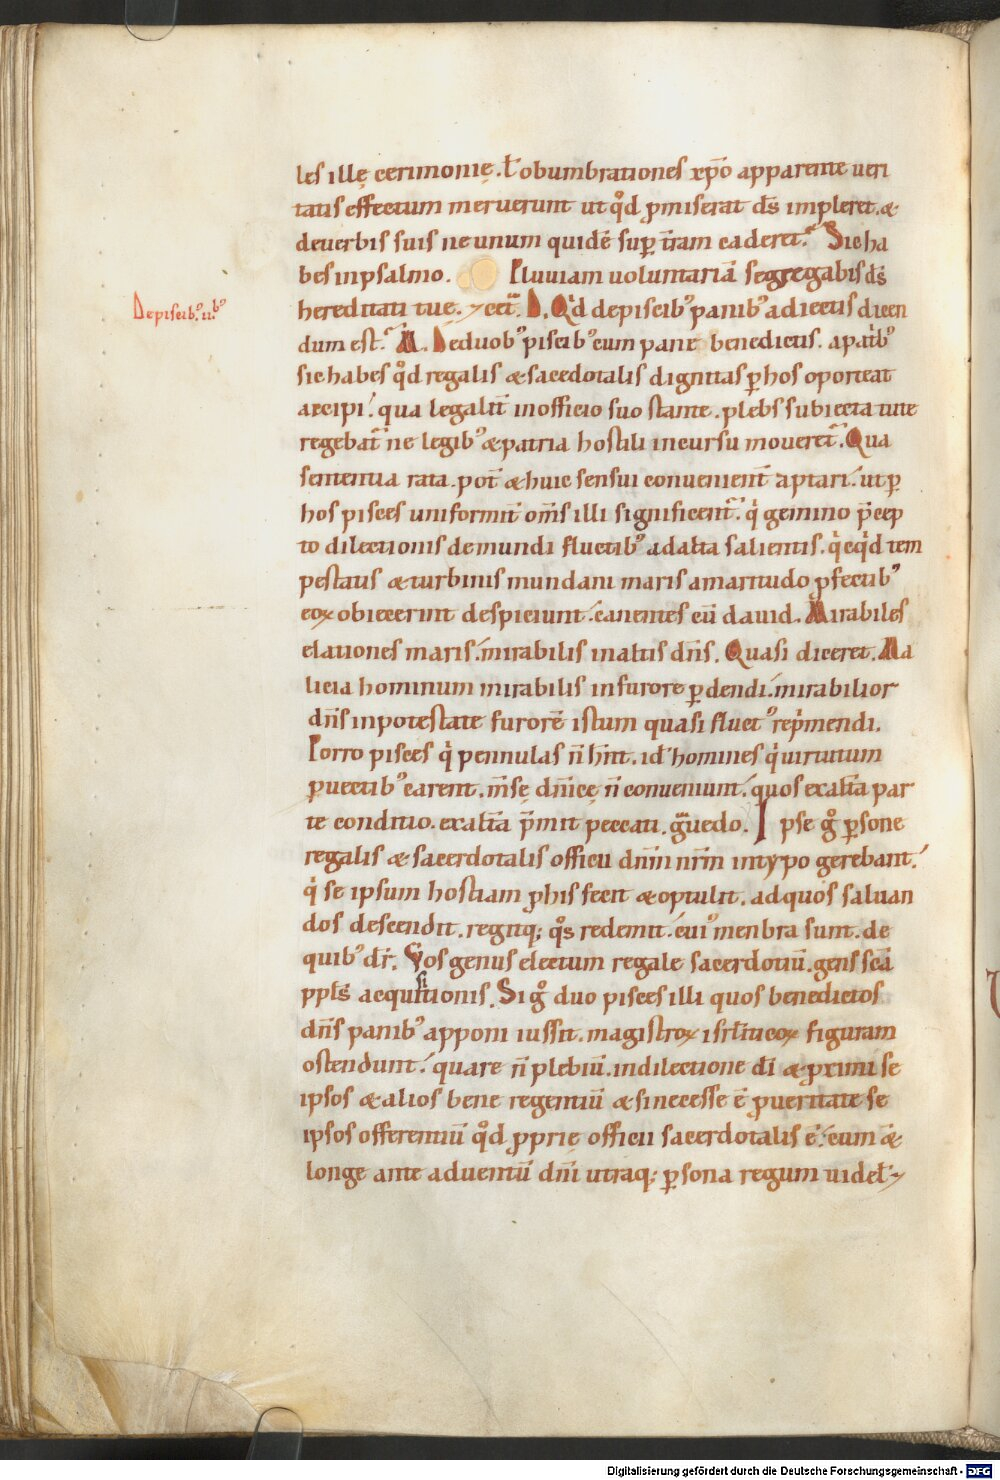 les illę cerimonię. ł obumbrationes xp̄o apparente ueri
tatis effectum meruerunt ut qͦd p̱miserat ds̄ impleret. &
deuerbis suis ne unum quidē sup̱ t̄ram caderet. Sic ha
bes inpsalmo. Pluuiam uoluntariā segregabis ds̄
De piscib᾽ .ii.b᾽
hereditati tue. D. Qd̄ depiscib᾽ panib᾽ adiectis dicen
dum est. M. Deduob᾽ piscib᾽ cum pane benedictis. a patrib᾽
sic habes qͦd regalis & sacedotalis dignitas p̱ hos oporteat
accipi. qua legalit̄ inofficio suo stante. plebs subiecta tute
regebat̄ ne legib᾽ & patria hostili incursu moueret̄. Qua
sententia rata. pot̄ & huic sensui conuenient̄ aptari. ut p̱
hos pisces uniformit̄ om̄s illi significent̄. qͥ gemino p̄cep
to dilectionis demundi fluctib᾽ adalta salientis. qͥcqͥd tem
pestatis & turbinis mundani maris amaritudo p̱fectib᾽
eoꝝ obiecerint despiciunt. canentes cū dauid. Mirabiles
elationes maris. mirabilis inaltis dn̄s. Quasi diceret. Ma
licia hominum mirabilis infurore p̱dendi. mirabilior
dn̄s inpotestate furorē istum quasi fluct᾽ rep̍mendi.
Porro pisces qͥ pennulas n̄ hn̄t. id᾽ homines qͥ uirtutum
p̱uectib᾽ carent. m̄sę dn̄icę n̄ conueniunt. quos exaltata par
te conditio. exaltata p̄mit peccati. g̈uedo. Ipse gͦ p̱sone
regalis & sacerdotalis officii dn̄m nr̄m intypo gerebant.
qͥ se ipsum hostiam p̱ his fecit & optulit. adquos saluan
dos descendit. regitq; qͦs redemit. cui᾽ menbra sunt. de
quib᾽ dr̄. Vos genus electum regale sacerdotiū. gens scā
ppl̄s acquisitionis. Si gͦ duo pisces illi quos benedictos
dn̄s panib᾽ apponi iussit. magistroꝝ isrl̄iticoꝝ figuram
ostendunt. quare n̄ plebiū. indilectione dī & pximi se
ipsos & alios bene regentiū & sinecesse ē p̱ueritate se
ipsos offerentiū qͦd p̱prie officii sacerdotalis ē. cum &
longe ante aduentū dn̄i utraq; p̱sona regum uidel̄
Digitalisierung gefördert durch die Deutsche Forschungsgemeinschaft - DFG